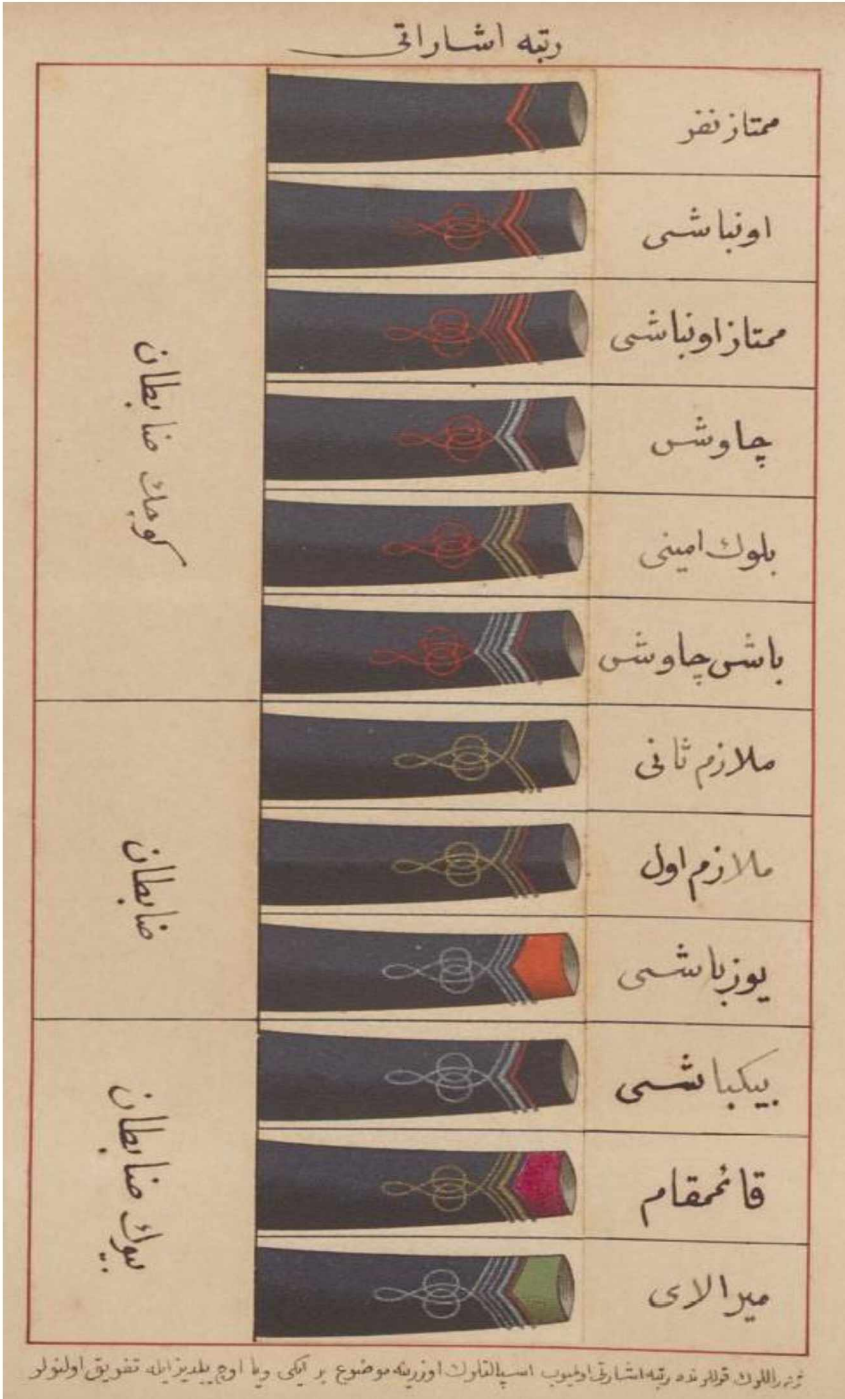 رتبه اشاراتى
ممتاز نفر
اونباشى
ممتاز اونباشى
چاوش
بلوك امينى
باش چاوش
كوچك ضابطان
ملازم ثانى
ملازم اول
يوزباشى
ضابطان
بيكباشى
قائممقام
ميرالاى
بيوك ضابطان
قوللرنده رتبه اشارتى اولميوب اسپالتلرك اوزرينه موضوع بر ايكى ويا اوچ ييلديز ايله تفريق اولنورلر